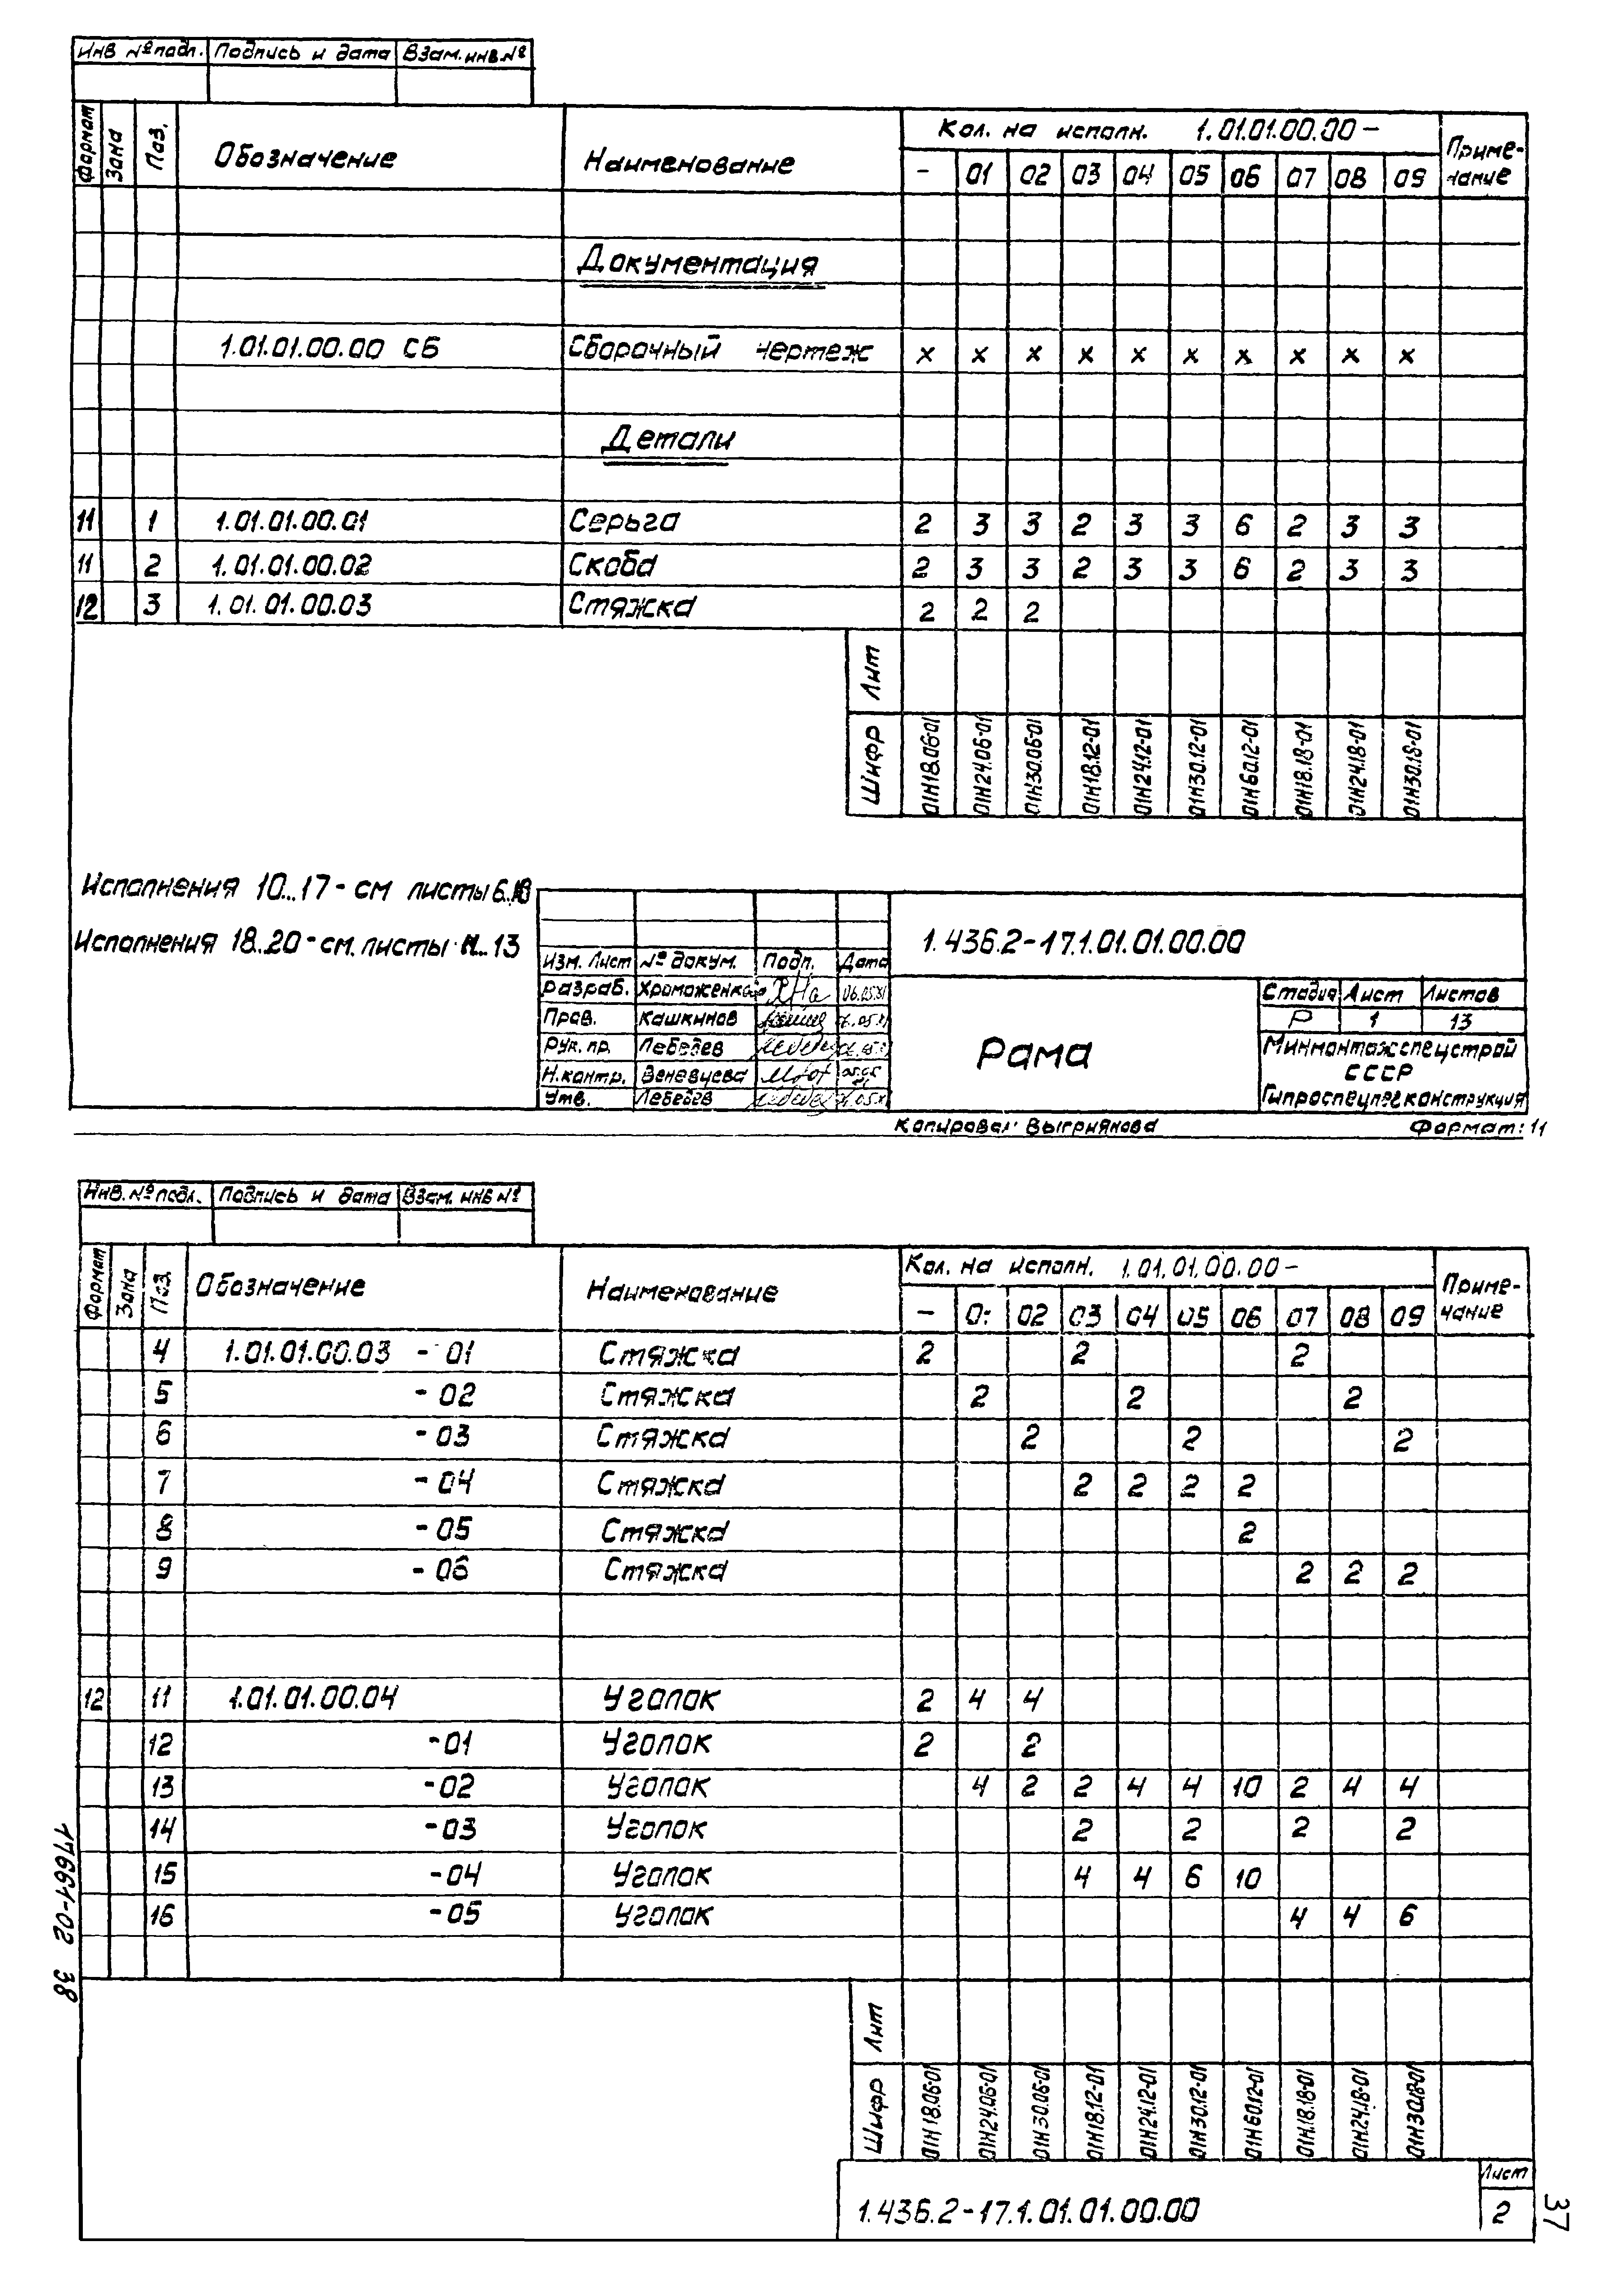 Инв № подл. Подпись и дата Взам. инв. №
Формат Зона Поз. Обозначение Наименование Кол. на исполн. 1.01.01.00.00 – Приме-чание
– 01 02 03 04 05 06 07 08 09
Документация
1.01.01.00.00 СБ Сборочный чертеж х х х х х х х х х х
Детали
11 1 1.01.01.00.01 Серьга 2 3 3 2 3 3 6 2 3 3
11 2 1.01.01.00.02 Скоба 2 3 3 2 3 3 6 2 3 3
12 3 1.01.01.00.03 Стяжка 2 2 2
Лит
Шифр 01Н18.06-01 01Н24.06-01 01Н30.06-01 01Н18.12-01 01Н24.12-01 01Н30.12-01 01Н60.12-01 01Н18.18-01 01Н24.18-01 01Н30.18-01
Исполнения 10...17 - см листы
Исполнения 18..20 - см. листы 13
1.436.2-17.1.01.01.00.00
Изм. Лист № докум. Подп. Дата
Разраб.
Пров. Кашкинов
Рук. пр. Лебедев
Н.контр. Веневцева
Утв. Лебедев
Рама
Стадия Лист Листов
Р 1 13
Минмонтажспецстрой
СССР
Гипроспецлегконструкция
Копировал: Формат: 11
Инв. № подл. Подпись и дата Взам. инв №
Формат Зона Поз. Обозначение Наименование Кол. на исполн. 1.01.01.00.00 – Приме-чание
– 0: 02 03 04 05 06 07 08 09
4 1.01.01.00.03 - 01 Стяжка 2 2 2
5 - 02 Стяжка 2 2 2
6 - 03 Стяжка 2 2 2
7 - 04 Стяжка 2 2 2 2
8 - 05 Стяжка 2
9 - 06 Стяжка 2 2 2
12 11 1.01.01.00.04 Уголок 2 4 4
12 -01 Уголок 2 2
13 -02 Уголок 4 2 2 4 4 10 2 4 4
14 -03 Уголок 2 2 2 2
15 -04 Уголок 4 4 6 10
16 -05 Уголок 4 4 6
Лит
Шифр 01Н18.06-01 01Н24.06-01 01Н30.06-01 01Н18.12-01 01Н24.12-01 01Н30.12-01 01Н60.12-01 01Н18.18-01 01Н24.18-01 01Н30.18-01
1.436.2-17.1.01.01.00.00
Лист
2
17661-02 38
37